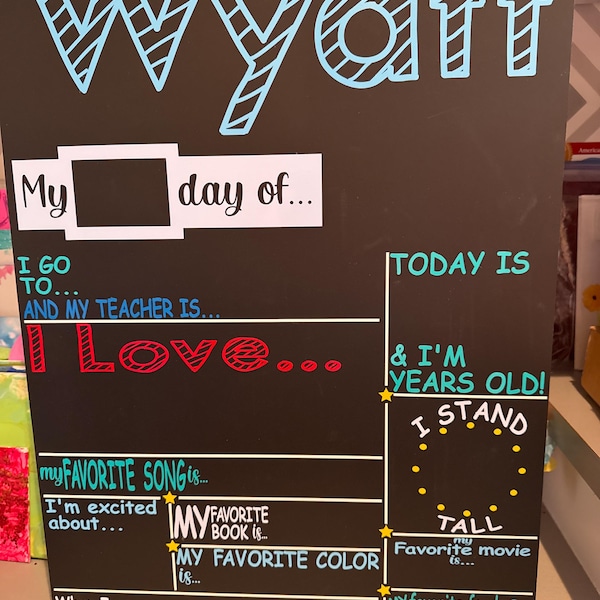 Wyatt
My day of...
I GO
TO...
AND MY TEACHER IS...
TODAY IS
& I'M
YEARS OLD!
I Love...
I STAND
TALL
my FAVORITE SONG is...
I'm excited
about...
MY FAVORITE
BOOK is...
MY FAVORITE COLOR
is...
my
Favorite movie
is...